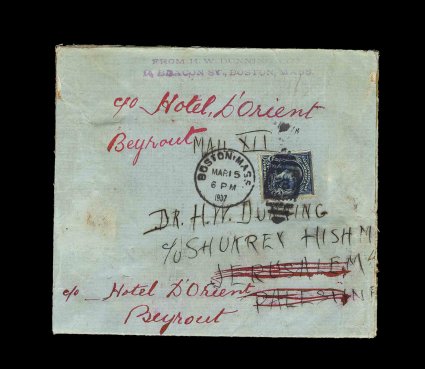 FROM H. W. DUNNING
14 BEACON ST., BOSTON, MASS.
c/o Hotel D'Orient
Beyrout
MAIL XII
BOSTON, MASS.
MAR 15
6 PM
1907
DR. H. W. DUNNING
c/o SHUKREY HISHM
JERUSALEM
PALESTINE
c/o Hotel D'Orient
Beyrout